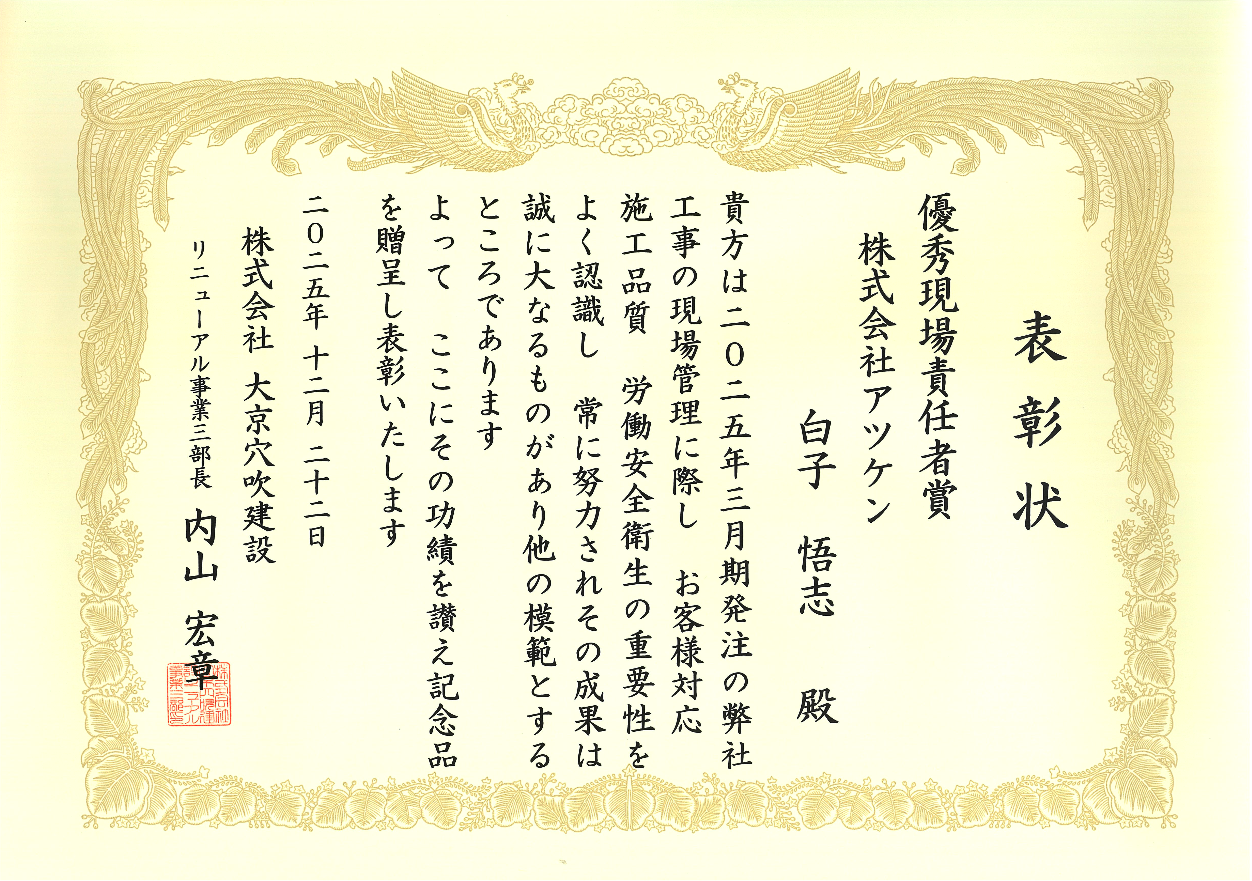 表彰状
優秀現場責任者賞
株式会社アツケン
白子 悟志 殿
貴方は二〇二五年三月期発注の弊社
工事の現場管理に際し お客様対応
施工品質 労働安全衛生の重要性を
よく認識し 常に努力されその成果は
誠に大なるものがあり他の模範とする
ところであります
よって ここにその功績を讃え記念品
を贈呈し表彰いたします
二〇二五年 十二月 二十二日
株式会社 大京穴吹建設
リニューアル事業三部長 内山 宏章